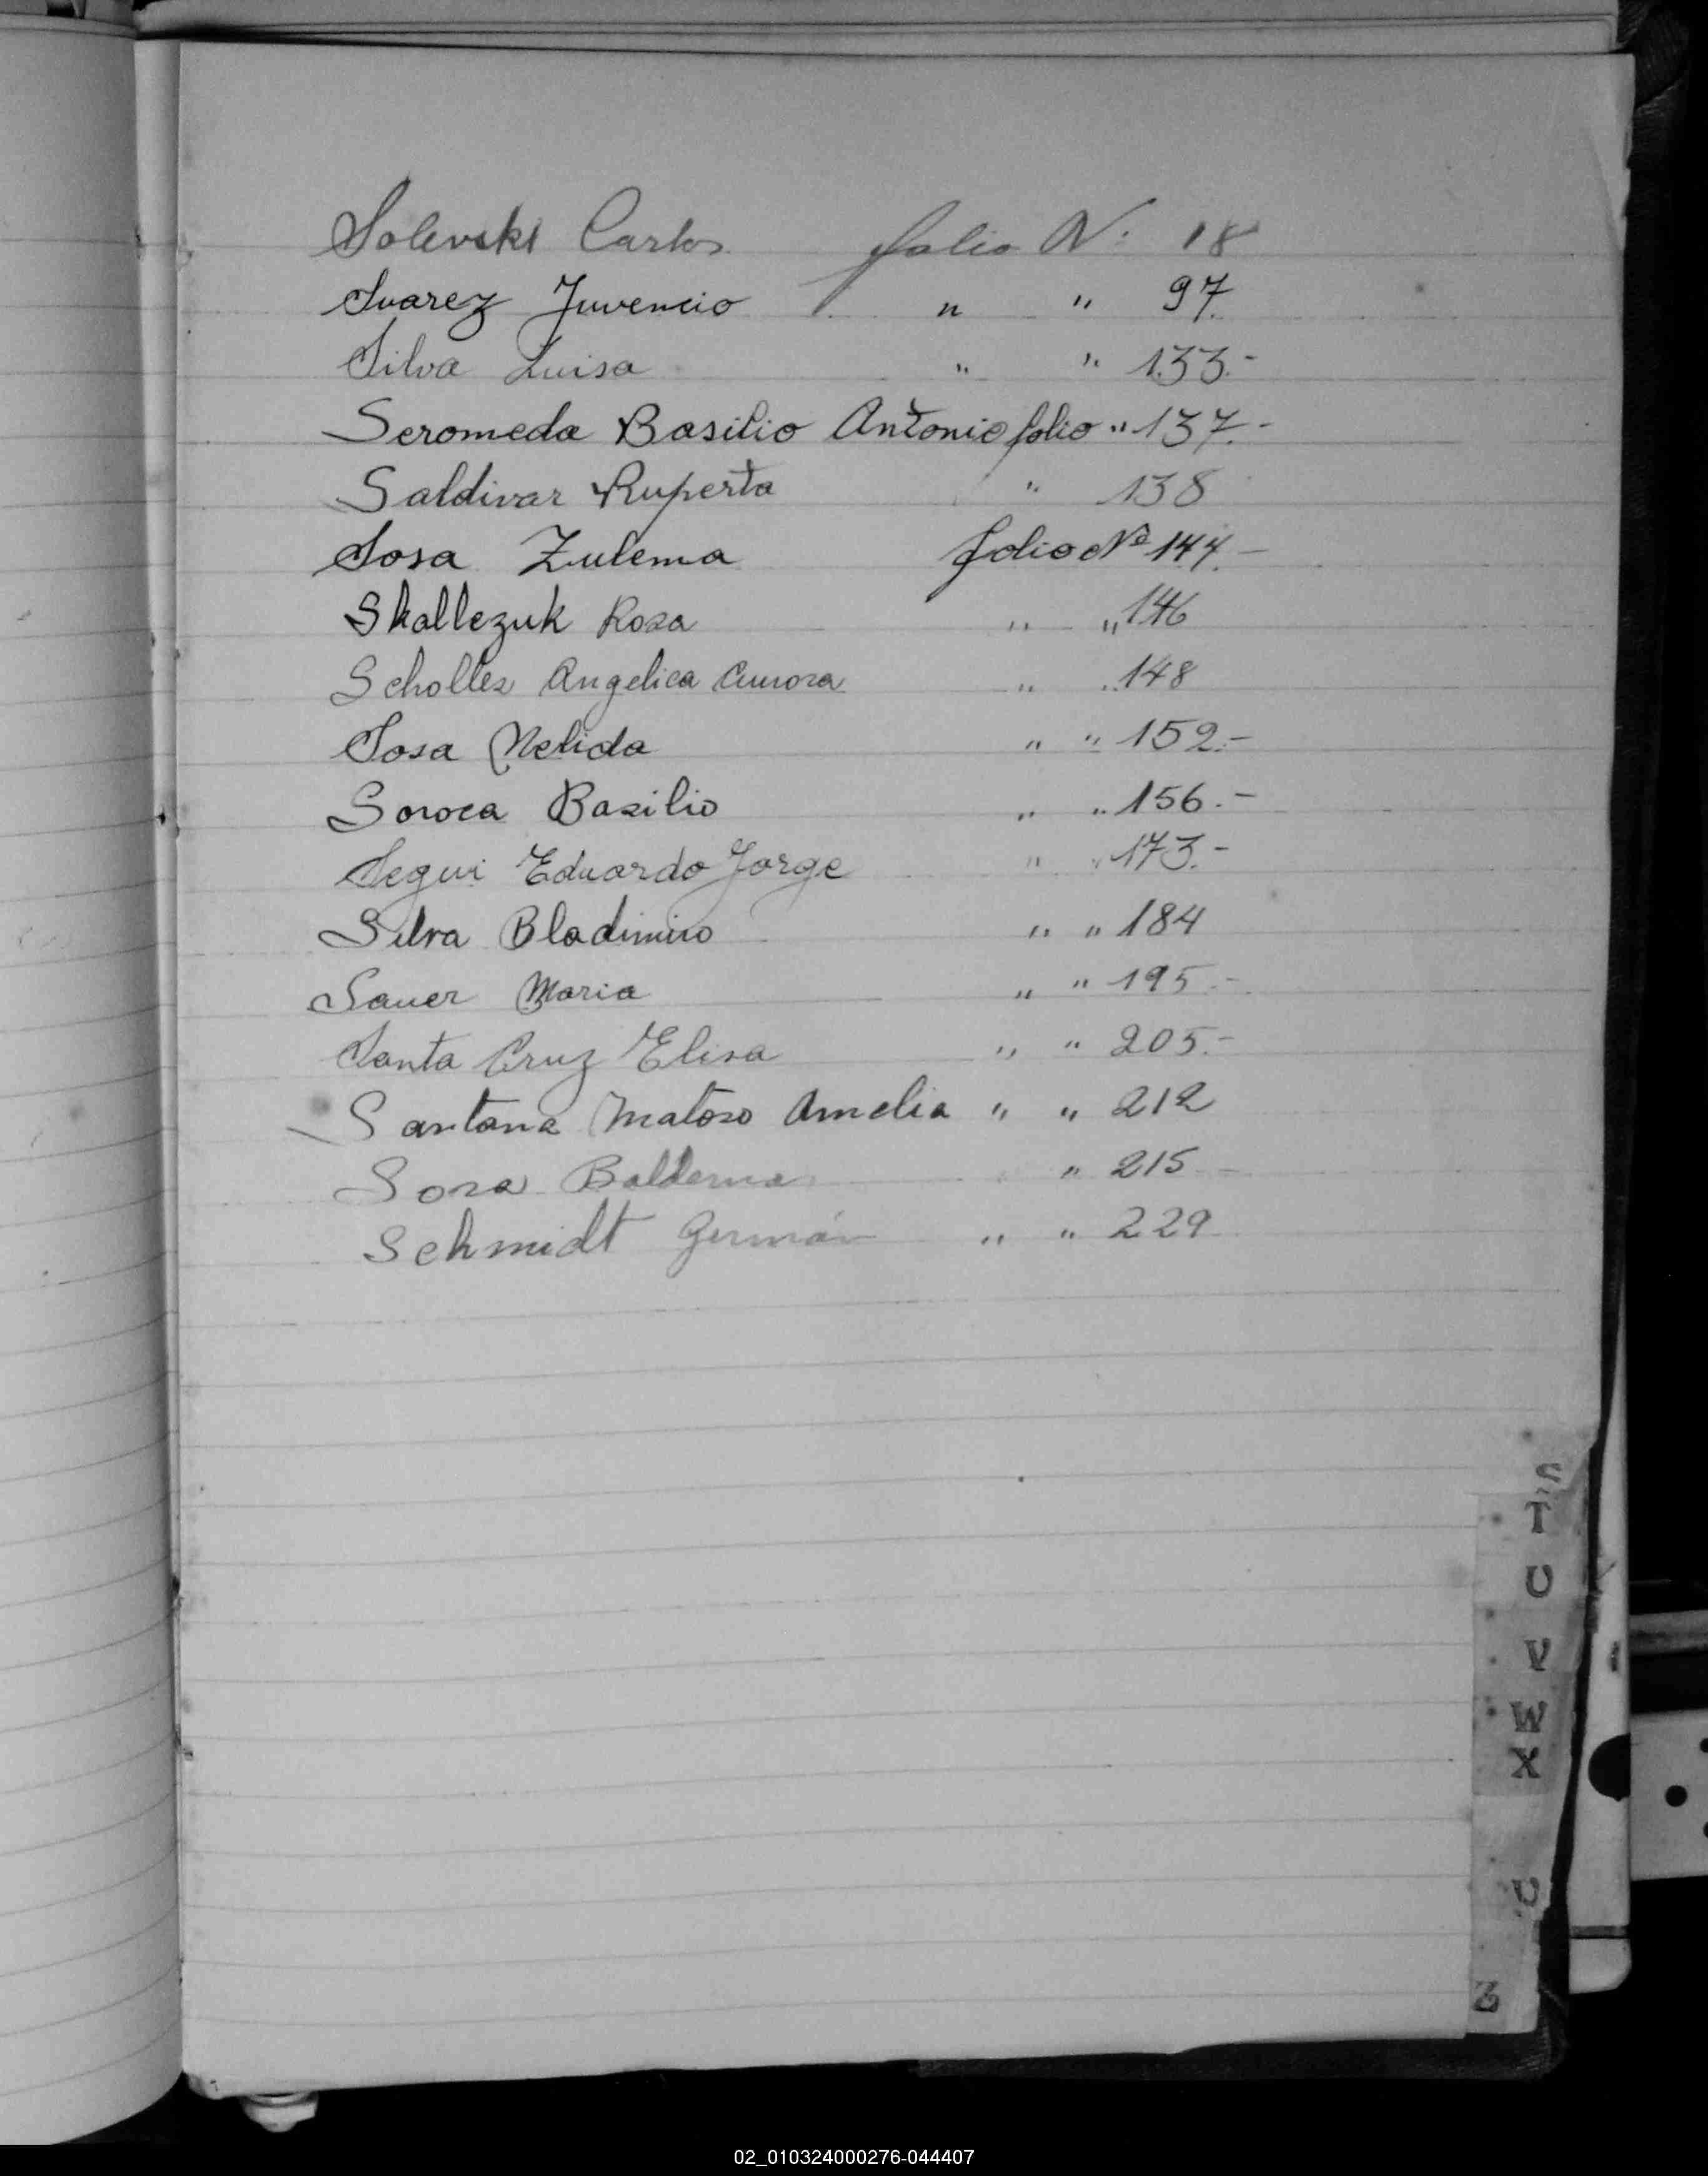 Solevski Carlos folio N: 18
Suarez Juvencio " " 97.
Silva Luisa " " 133.-
Seromeda Basilio Antonio folio " 137.-
Saldivar Ruperta " 138
Sosa Zulema folio Nº 144.-
Skallezuk Rosa " " 146
Scholles Angelica Aurora " " 148
Sosa Nelida " " 152.-
Soroca Basilio " " 156.-
Segui Eduardo Jorge " " 173.-
Silva Bladimiro " " 184
Sauer Maria " " 195.-
Santa Cruz Elisa " " 205.-
Santana Matoso Amelia " " 212
Sosa " 215
Schmidt Germán " " 229
S
T
U
V
W
X
U
Z
02_010324000276-044407